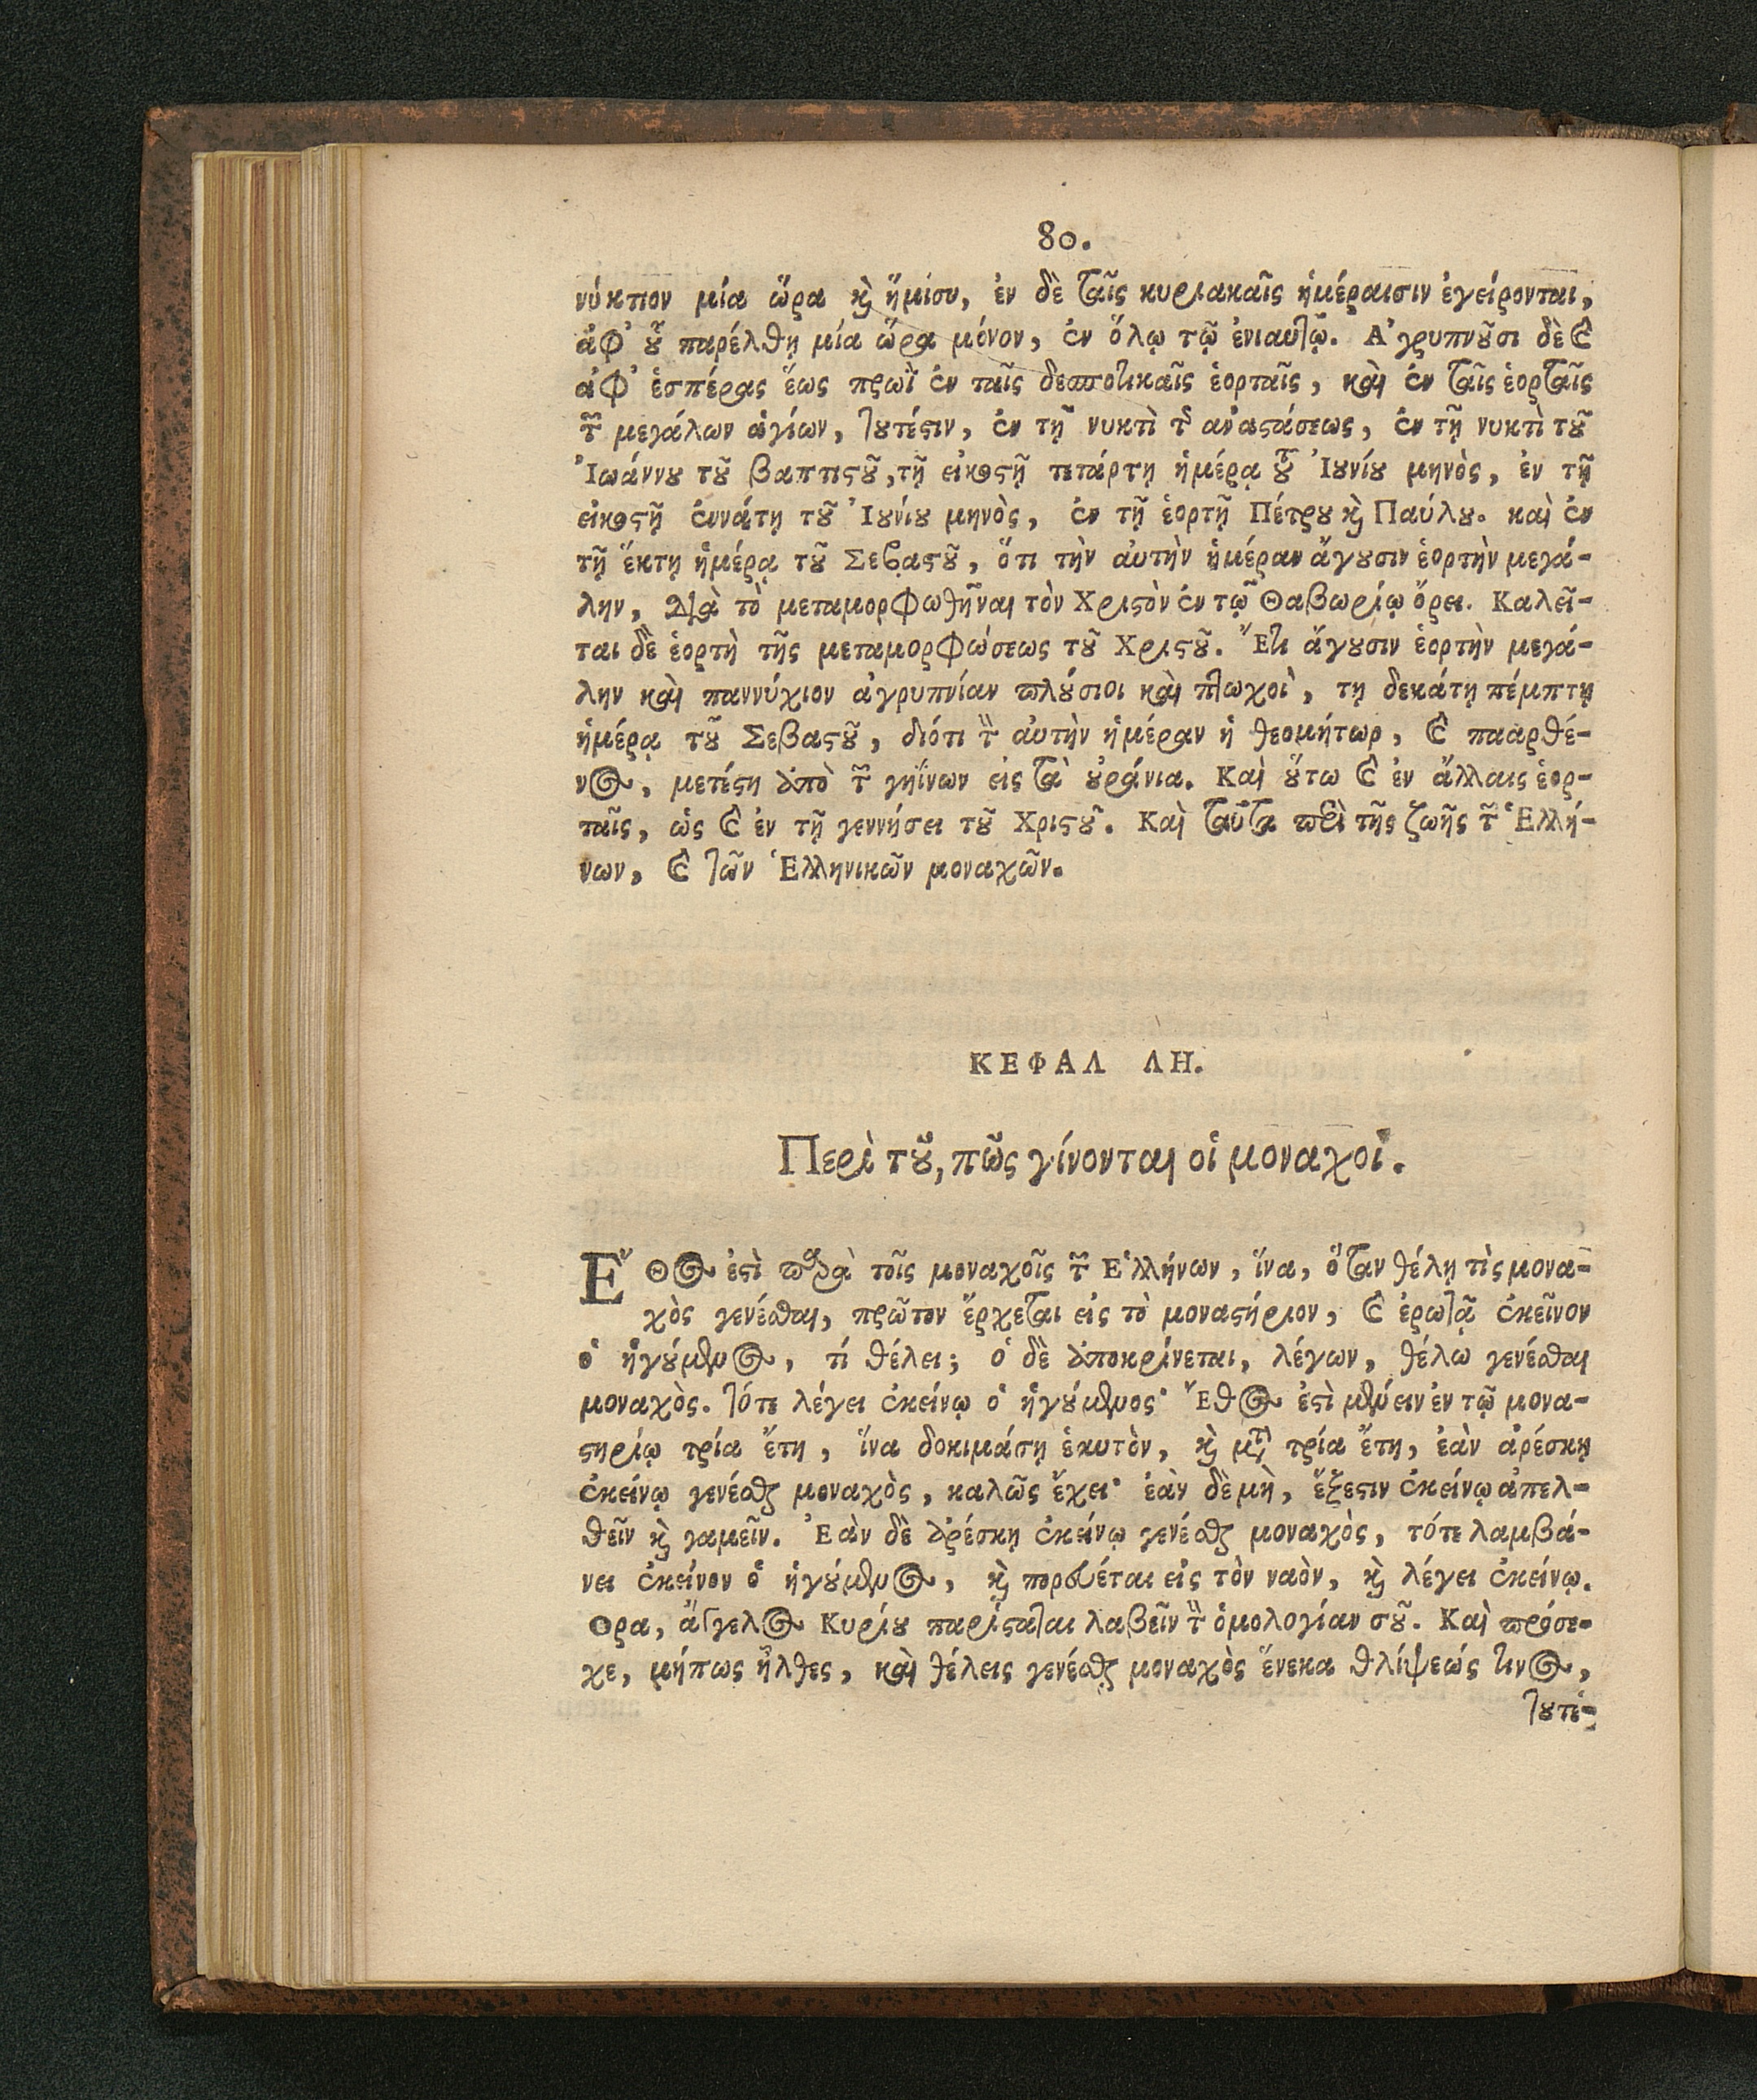 80.
νύκτιον μία ὥρα καὶ ἥμισυ, ἐν δὲ ταῖς κυριακαῖς ἡμέραισιν ἐγείρονται,
ἀφ' ȣ̓͂ παρέλθῃ μία ὥρα μόνον, ἐν ὅλῳ τῷ ἐνιαυτῷ. Ἀγρυπνȣ͂σι δὲ καὶ
ἀφ' ἑσπέρας ἕως πρωῒ ἐν ταῖς δεσποτικαῖς ἑορταῖς, καὶ ἐν ταῖς ἑορταῖς
τῶν μεγάλων ἁγίων, τȣτέϛιν, ἐν τῇ νυκτὶ τῆς ἀναϛάσεως, ἐν τῇ νυκτὶ τȣ͂
Ἰωάννȣ τȣ͂ βαπτιϛȣ͂, τῇ εἰκοϛῇ τετάρτῃ ἡμέρᾳ τȣ͂ Ἰȣνίȣ μηνὸς, ἐν τῇ
εἰκοϛῇ ἐννάτῃ τȣ͂ Ἰȣνίȣ μηνὸς, ἐν τῇ ἑορτῇ Πέτρȣ καὶ Παύλȣ. καὶ ἐν
τῇ ἕκτῃ ἡμέρᾳ τȣ͂ Σεβαϛȣ͂, ὅτι τὴν αὐτὴν ἡμέραν ἄγȣσιν ἑορτὴν μεγά-
λην, διὰ τὸ μεταμορφωθῆναι τὸν Χριϛὸν ἐν τῷ Θαβωρίῳ ὄρει. Καλεῖ-
ται δὲ ἑορτὴ τῆς μεταμορφώσεως τȣ͂ Χριϛȣ͂. Ἔτι ἄγȣσιν ἑορτὴν μεγά-
λην καὶ παννύχιον ἀγρυπνίαν πλȣ́σιοι καὶ πτωχοὶ, τῃ δεκάτῃ πέμπτῃ
ἡμέρᾳ τȣ͂ Σεβαϛȣ͂, διότι τὴν αὐτὴν ἡμέραν ἡ θεομήτωρ, καὶ πααρθέ-
νος, μετέϛη ἀπὸ τῶν γηΐνων εἰς τὰ ȣ̓ράνια. Καὶ ȣ̔́τω καὶ ἐν ἄλλαις ἑορ-
ταῖς, ὡς καὶ ἐν τῇ γεννήσει τȣ͂ Χριϛȣ͂. Καὶ ταῦτα περὶ τῆς ζωῆς τῶν Ἑλλή-
νων, καὶ τῶν Ἑλληνικῶν μοναχῶν.
ΚΕΦΑΛ ΛΗ.
Περὶ τȣ͂, πῶς γίνονται οἱ μοναχοί.
Ἔθος ἐϛὶ παρὰ τοῖς μοναχοῖς τῶν Ἑλλήνων, ἵνα, ὅταν θέλῃ τὶς μονα-
χὸς γενέσθαι, πρῶτον ἔρχεται εἰς τὸ μοναϛήριον, καὶ ἐρωτᾷ ἐκεῖνον
ὁ ἡγȣ́μενος, τί θέλει; ὁ δὲ ἀποκρίνεται, λέγων, θέλω γενέσθαι
μοναχὸς. τότε λέγει ἐκείνῳ ὁ ἡγȣ́μενος· Ἔθος ἐϛὶ μένειν ἐν τῷ μονα-
ϛηρίῳ τρία ἔτη, ἵνα δοκιμάσῃ ἑκυτὸν, καὶ μετὰ τρία ἔτη, ἐὰν ἀρέσκῃ
ἐκείνῳ γενέσθαι μοναχὸς, καλῶς ἔχει· ἐὰν δὲ μὴ, ἔξεϛιν ἐκείνῳ ἀπελ-
θεῖν καὶ γαμεῖν. Ἐὰν δὲ ἀρέσκῃ ἐκείνῳ γενέσθαι μοναχὸς, τότε λαμβά-
νει ἐκείνον ὁ ἡγȣ́μενος, καὶ πορευέται εἰς τὸν ναὸν, καὶ λέγει ἐκείνῳ.
Ορα, ἄγγελος Κυρίȣ παρίϛαται λαβεῖν τὴν ὁμολογίαν σȣ͂. Καὶ πρόσε-
χε, μήπως ἦλθες, καὶ θέλεις γενέσθαι μοναχὸς ἕνεκα θλίψεώς τινος,
τȣτέ-